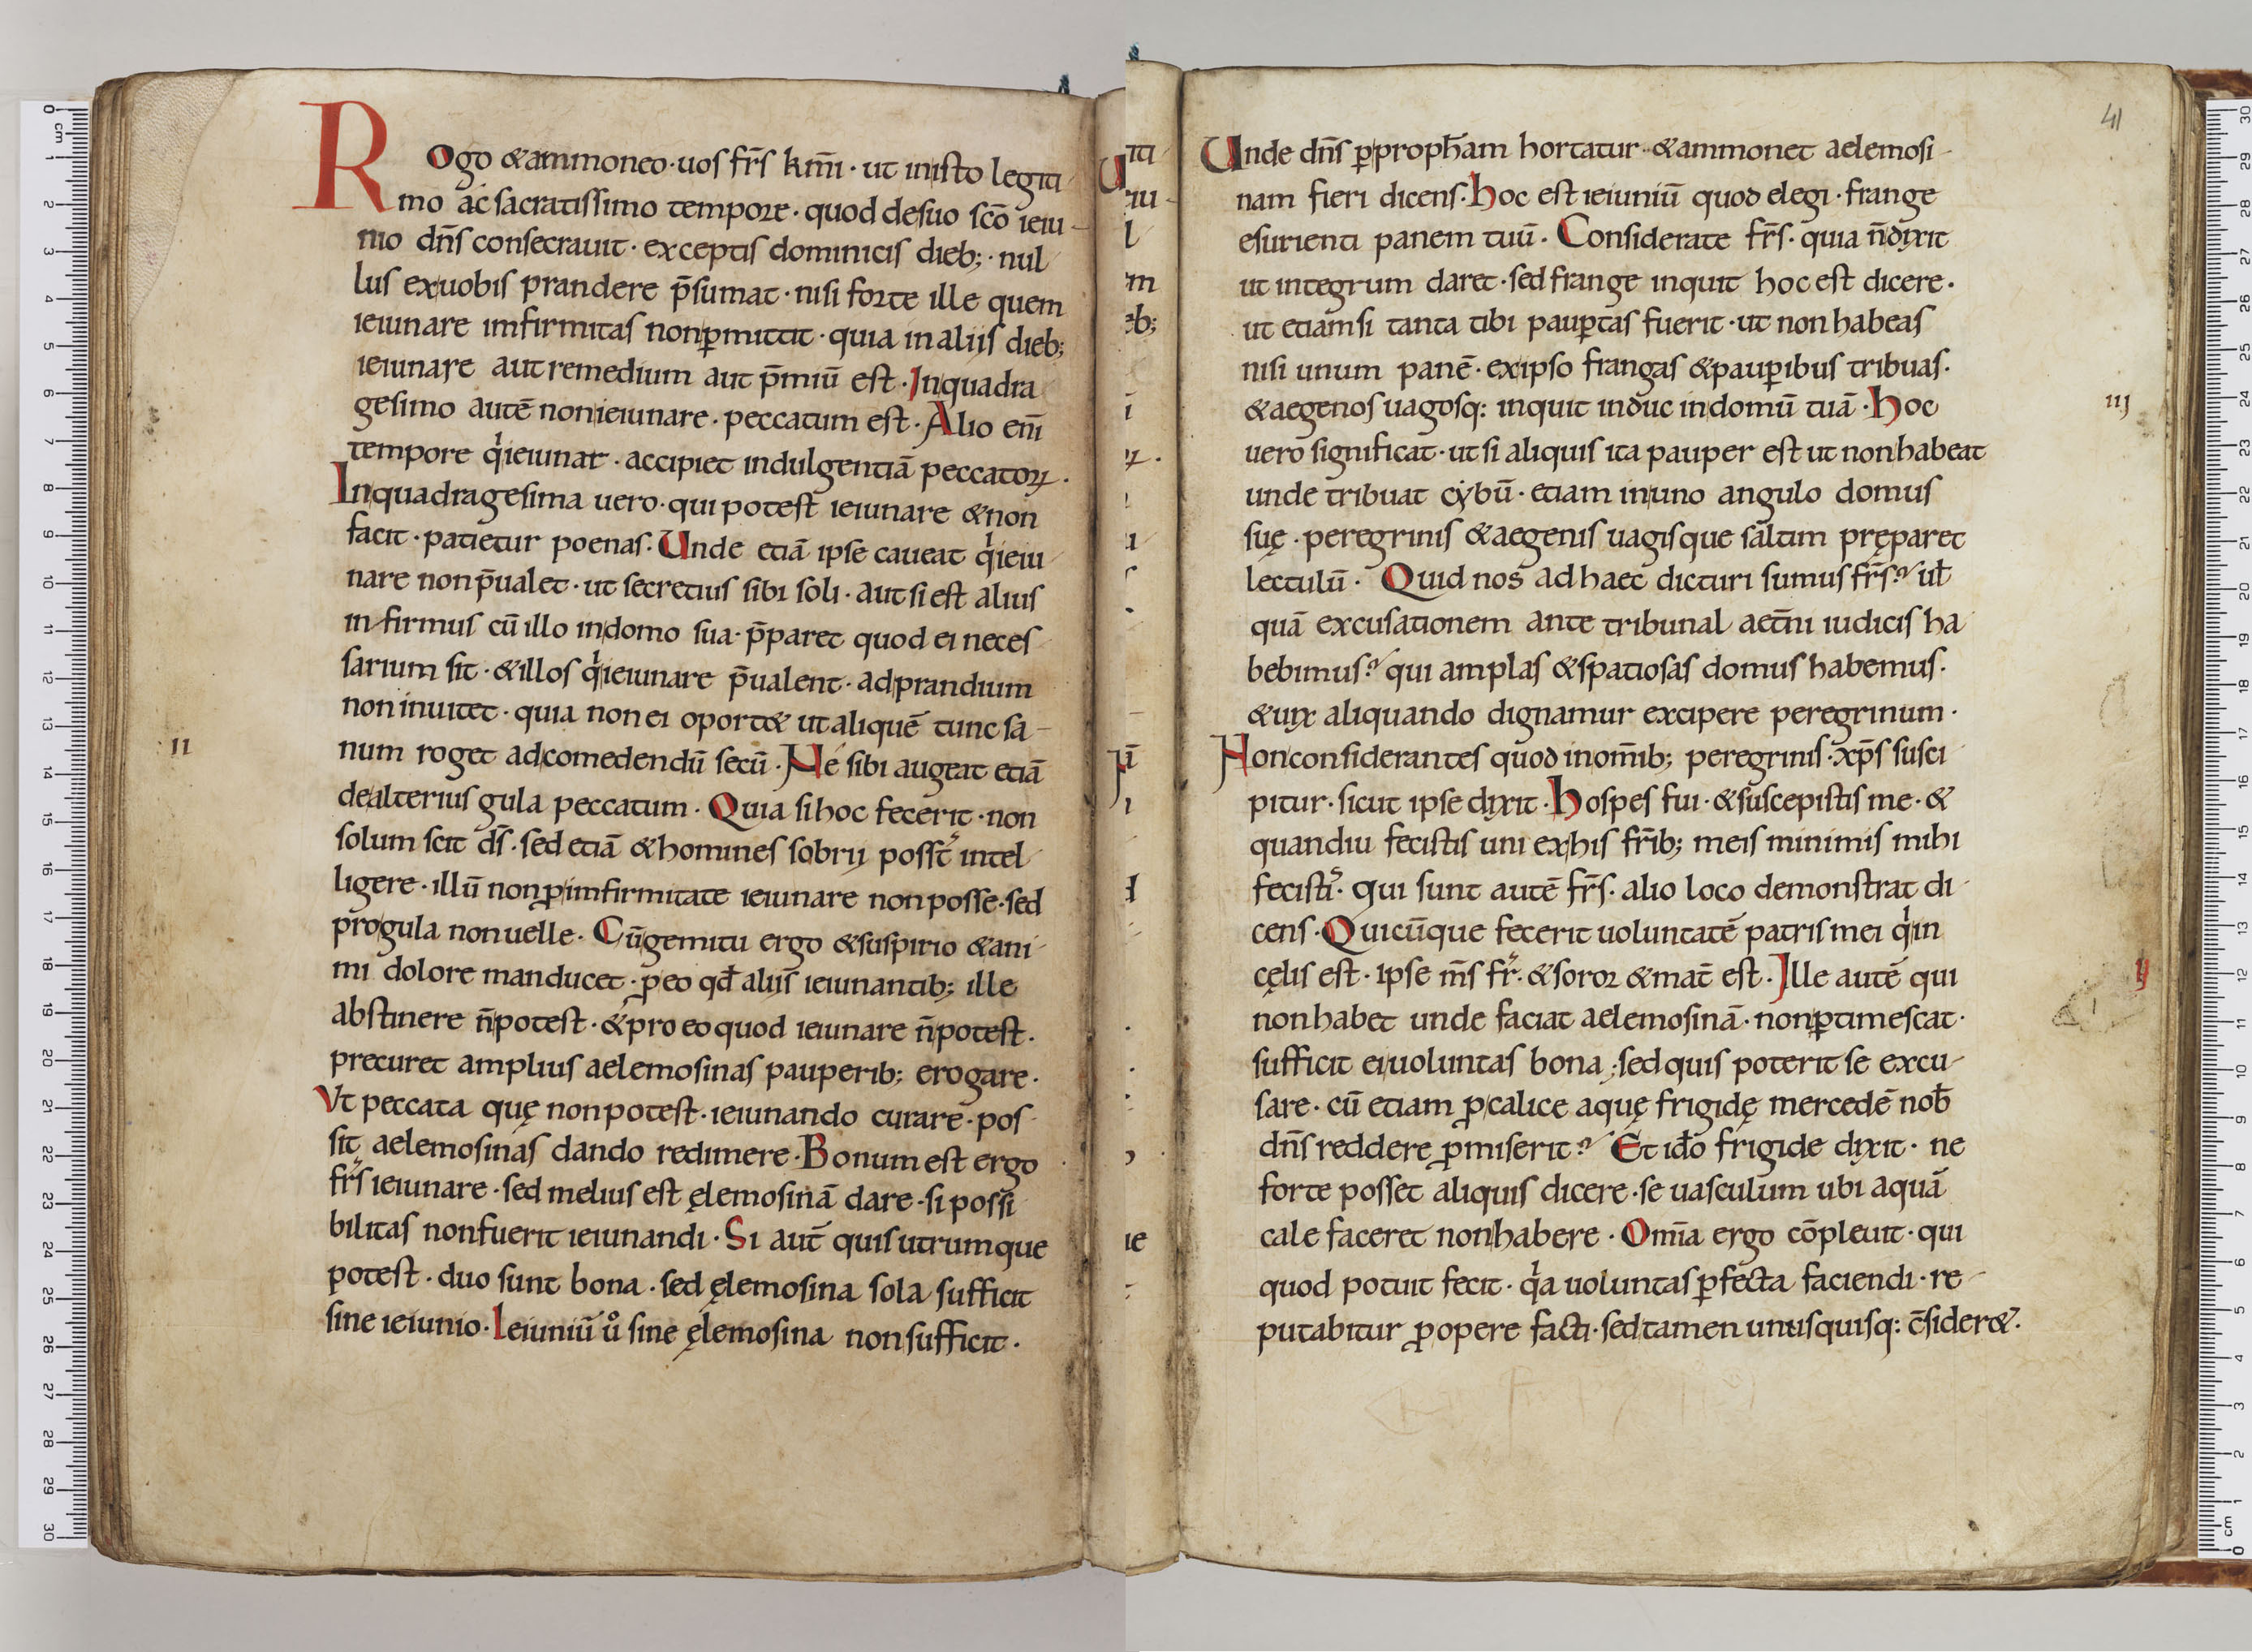 Rogo &ammoneo·uos fr̄s km̄i· ut inisto legiti
mo ac sacratissimo tempore· quod desuo sc̄o ieiu-
nio dn̄s consecrauit· exceptis dominicis dieb;· nul
lus exuobis prandere p̄sumat· nisi forte ille quem
ieiunare imfirmitas nonꝑmittit· quia inaliis dieb;
ieiunare aut remedium aut p̄miū est· Inquadra
gesimo autē nonieiunare· peccatum est· Alio eni̅
tempore qͥieiunat· accipiet indulgentiā peccatoꝝ·
Inquadragesima uero· qui potest ieiunare &non
facit· patietur poenas· Unde etiā ipse caueat qͥieiu
nare nonp̄ualet· ut secretius sibi soli· aut si est alius
infirmus cū illo indomo sua· p̄paret quod ei neces
sarium sit· &illos qͥieiunare p̄ualent· adprandium
non inuitet· quia non ei oport& ut aliquē tunc sa-
II
num roget adcomedendū secū· Ne sibi augeat etiā
dealterius gula peccatum· Quia sihoc fecerit· non
solum scit ds̄· sed etiā &homines sobrij possꝰt intel
ligere· illū nonꝓimfirmitate ieiunare nonposse· sed
progula nonuelle· Cūgemitu ergo &suspirio &ani
mi dolore manducet· ꝓeo qđ aliis ieiunantib; ille
abstinere n̄potest· &pro eo quod ieiunare n̄potest·
precuret amplius aelemosinas pauperib; erogare·
Vt peccata quę nonpotest· ieiunando curare· pos
sit aelemosinas dando redimere· Bonum est ergo
fr̄s ieiunare· sed melius est ęlemosinā dare· si possi
bilitas nonfuerit ieiunandi· Si autē quis utrumque
potest· duo sunt bona· sed ęlemosina sola sufficit
sine ieiunio· Ieiuniū uͦ sine ęlemosina non sufficit·
41
Unde dn̄s ꝑproph̄am hortatur· &ammonet aelemosi
nam fieri dicens· hoc est ieiuniū quod elegi· frange
esurienti panem tuū· Considerate fr̄s· quia n̄dixit
ut integrum daret· sed frange inquit hoc est dicere·
ut etiamsi tanta tibi pauꝑtas fuerit· ut non habeas
nisi unum panē· exipso frangas &pauꝑibus tribuas·
&aegenos uagosq: inquit induc indomū tuā· hoc
III
uero significat· ut si aliquis ita pauper est ut nonhabeat
unde tribuat cybū· etiam inuno angulo domus
suę· peregrinis &aegenis uagisque saltim pręparet
lectulū· Quid nos ad haec dicturi sumus fr̄s? uł
quā excusationem ante tribunal aet̄ni iudicis ha
bebimus? qui amplas &spatiosas domus habemus·
&uix aliquando dignamur excipere peregrinum·
Nonconsiderantes quod inom̄ib; peregrinis· xp̄s susci
pitur· sicut ipse dixit· hospes fui· &suscepistis me· &
quandiu fecistis uni exhis fr̄ib; meis minimis mihi
fecisti· qui sunt autē fr̄s· alio loco demonstrat di
cens· Quicūque fecerit uoluntatē patris mei qͥin
cęlis est· ipse m̄s fr̄· &soror &mat̄ est· Ille autē qui
nonhabet unde faciat aelemosinā· nonꝑtimescat·
sufficit eiuoluntas bona; sed quis poterit se excu-
sare· cū etiam ꝓcalice aquę frigidę mercedē nob̄
dn̄s reddere ꝓmiserit? Et iđo frigide dixit· ne
forte posset aliquis dicere· se uasculum ubi aquā
cale faceret nonhabere· Om̄ia ergo cōpleuit· qui
quod potuit fecit· qͥa uoluntas ꝑfecta faciendi· re-
putabitur ꝓopere facti· sedtamen unusquisq: c̄sider&·